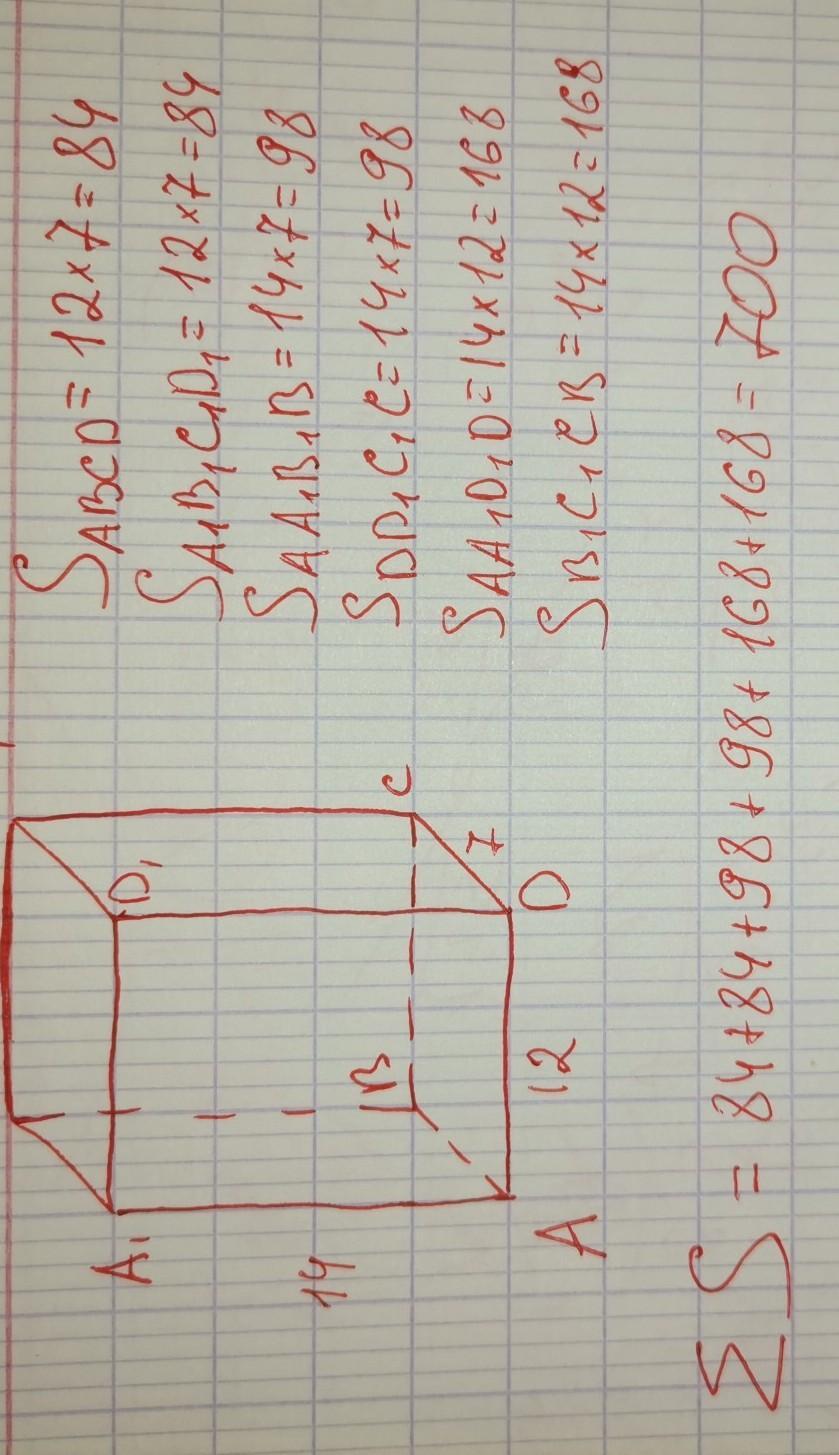 A₁
D₁
14
B
C
7
A
12
D
S ABCD = 12×7=84
S A₁B₁C₁D₁ = 12×7=84
S AA₁B₁B = 14×7=98
S DD₁C₁C = 14×7=98
S AA₁D₁D = 14×12=168
S B₁C₁CB = 14×12=168
Σ S = 84+84+98+98+168+168= 700